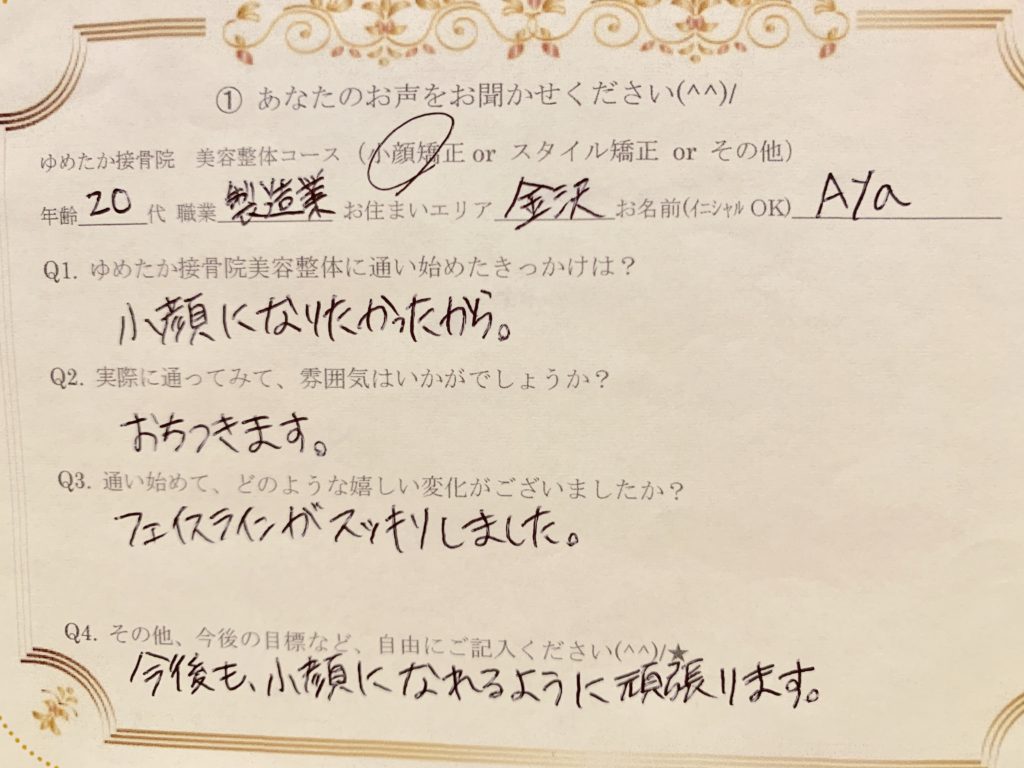 ① あなたのお声をお聞かせください(^^)/
ゆめたか接骨院 美容整体コース（小顔矯正 or スタイル矯正 or その他）
年齢 20 代 職業 製造業 お住まいエリア 金沢 お名前(ｲﾆｼｬﾙ OK) AYa
Q1. ゆめたか接骨院美容整体に通い始めたきっかけは？
小顔になりたかったから。
Q2. 実際に通ってみて、雰囲気はいかがでしょうか？
おちつきます。
Q3. 通い始めて、どのような嬉しい変化がございましたか？
フェイスラインがスッキリしました。
Q4. その他、今後の目標など、自由にご記入ください(^^)/★
今後も、小顔になれるように頑張ります。